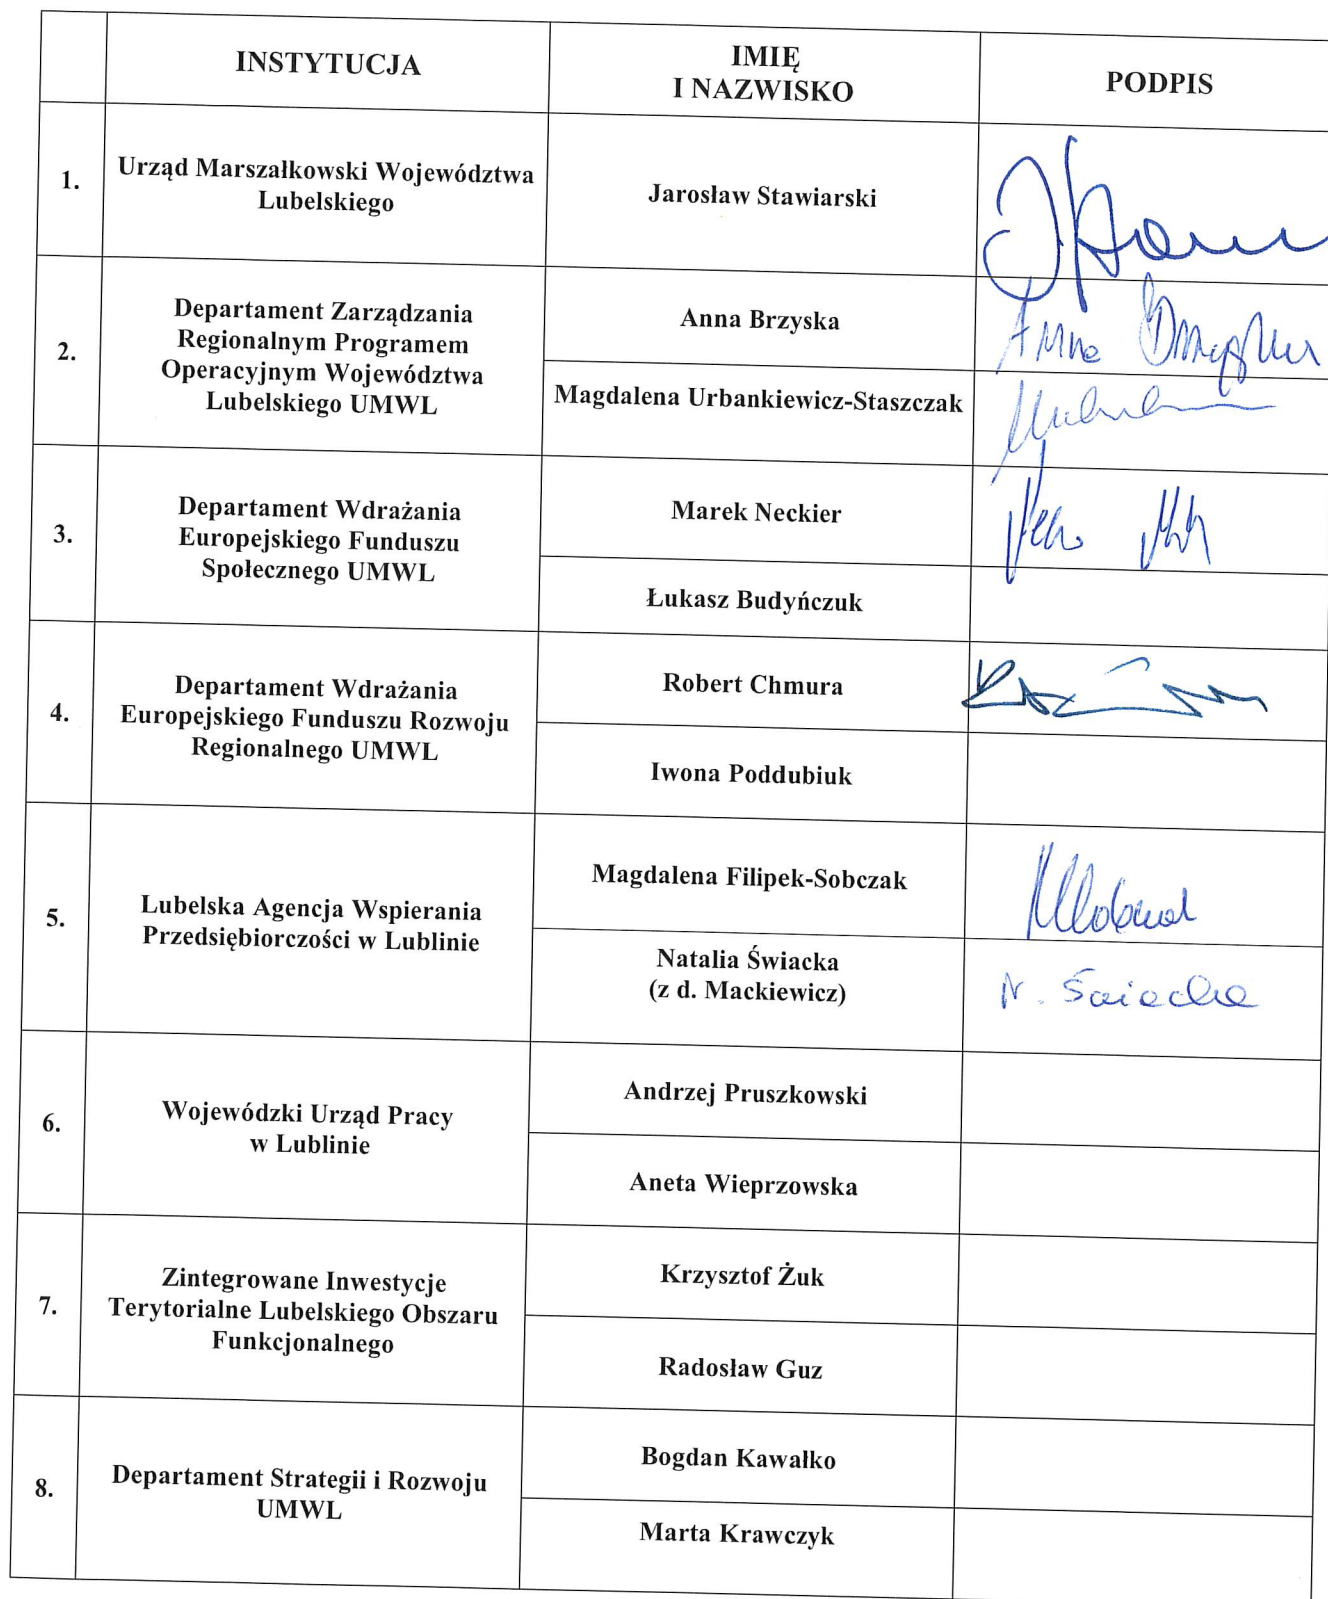 INSTYTUCJA
IMIĘ
I NAZWISKO
PODPIS
1.
Urząd Marszałkowski Województwa
Lubelskiego
Jarosław Stawiarski
2.
Departament Zarządzania
Regionalnym Programem
Operacyjnym Województwa
Lubelskiego UMWL
Anna Brzyska
Magdalena Urbankiewicz-Staszczak
3.
Departament Wdrażania
Europejskiego Funduszu
Społecznego UMWL
Marek Neckier
Łukasz Budyńczuk
4.
Departament Wdrażania
Europejskiego Funduszu Rozwoju
Regionalnego UMWL
Robert Chmura
Iwona Poddubiuk
5.
Lubelska Agencja Wspierania
Przedsiębiorczości w Lublinie
Magdalena Filipek-Sobczak
Natalia Świacka
(z d. Mackiewicz)
N. Świacka
6.
Wojewódzki Urząd Pracy
w Lublinie
Andrzej Pruszkowski
Aneta Wieprzowska
7.
Zintegrowane Inwestycje
Terytorialne Lubelskiego Obszaru
Funkcjonalnego
Krzysztof Żuk
Radosław Guz
8.
Departament Strategii i Rozwoju
UMWL
Bogdan Kawałko
Marta Krawczyk